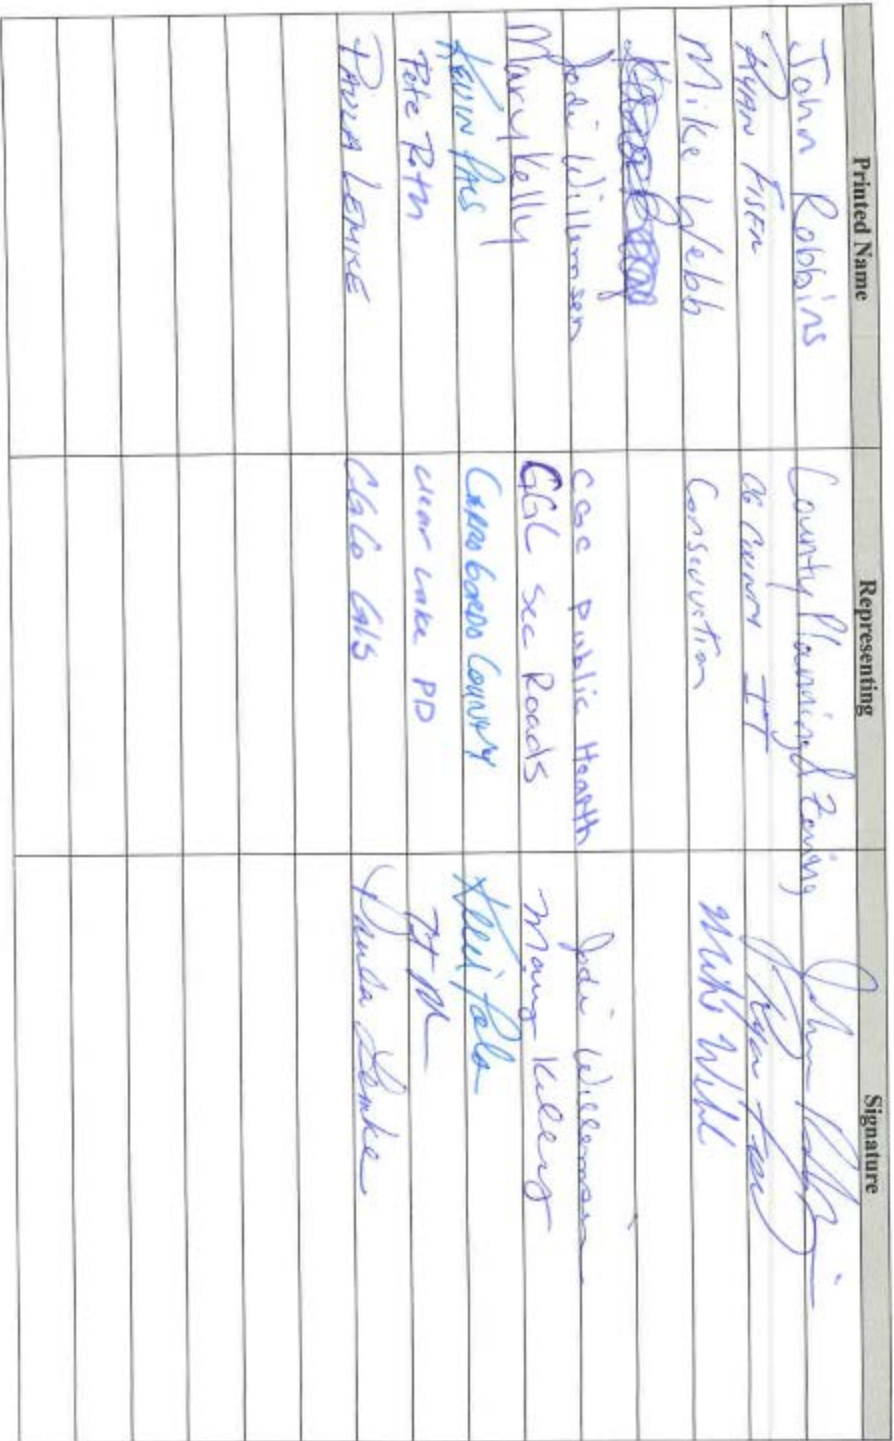 Printed Name Representing Signature
John Robbins County Planning & Zoning John Robbins
RYAN CG County IT Ryan
Mike Webb Conservation Mike Webb
Jodi Willemsen CGC Public Health Jodi Willemsen
Mary Kelly Sec Roads Mary Kelly
KEVIN PALS CERRO GORDO COUNTY
Pete Roth Clear Lake PD
PAULA LEMKE CG Co GIS Paula Lemke